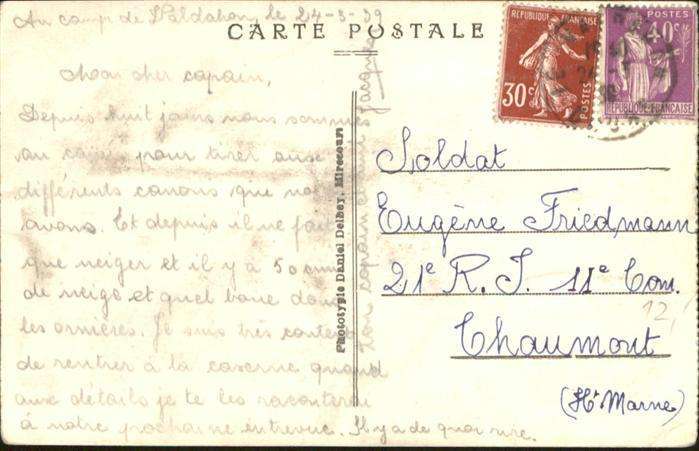 Au camp de Valdahon, le 24-3-39
CARTE POSTALE
Mon cher copain,
Depuis huit jours nous sommes
au camp pour tirer aux
différents canons que nous
avons. Et depuis il ne fait
que neiger et il y à 50 cm
de neige et quel boue dans
les ornières. Je suis très content
de rentrer à la caserne quand
aux détails je te les raconterai
à notre prochaine entrevue. Il y a de quoi rire.
Ton copain Jacques
Phototypie Daniel Delbey, Mirecourt
REPUBLIQUE FRANÇAISE
30c
POSTES
POSTES
40c
REPUBLIQUE FRANÇAISE
Soldat
Eugène Friedmann
21e R. I. 11e Com.
Chaumont
(Hte Marne)
12,